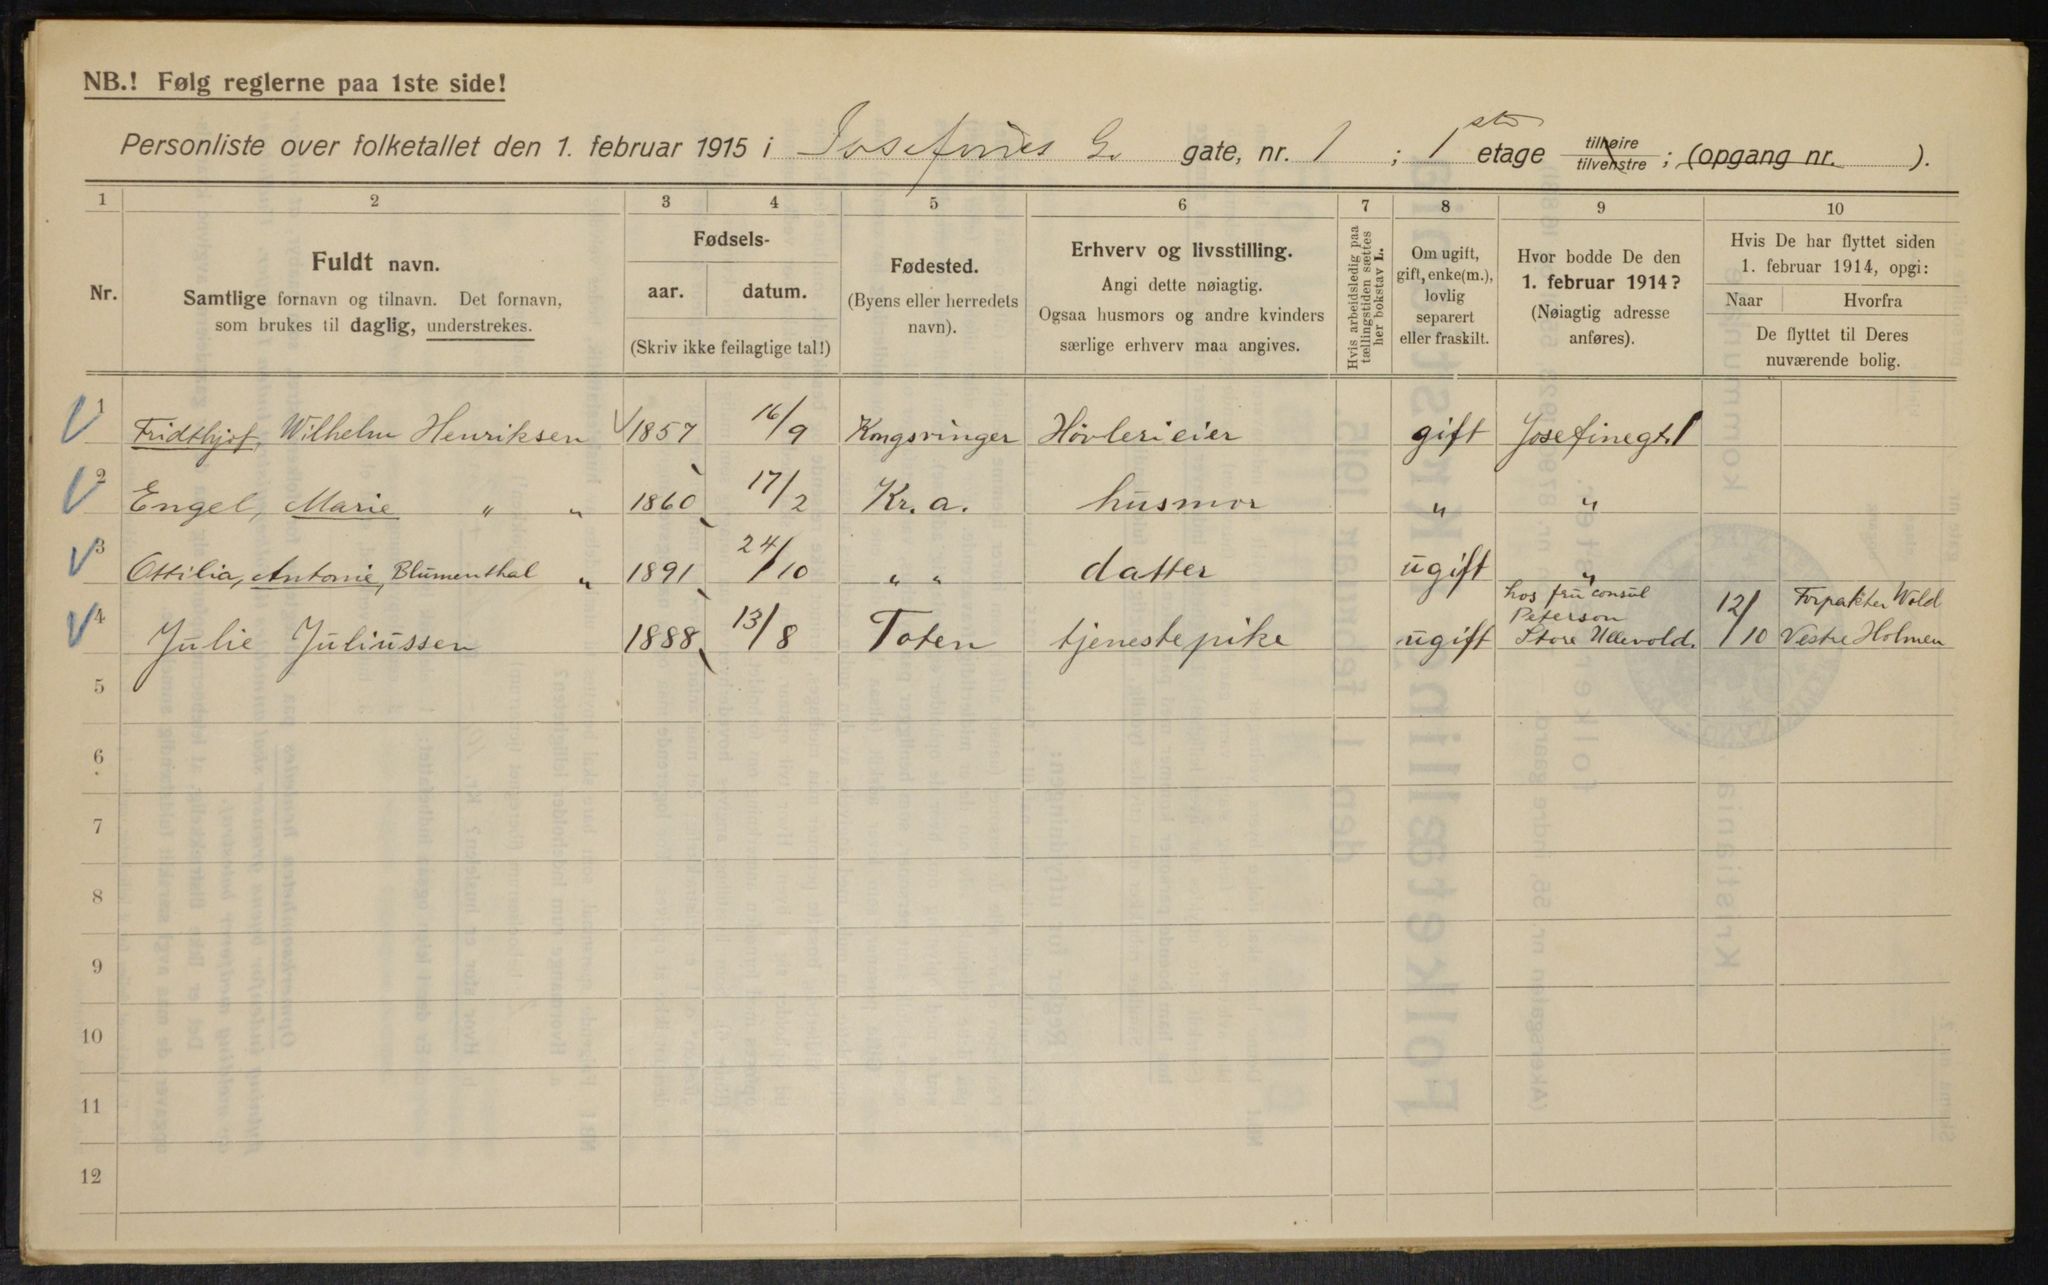 NB.! Følg reglerne paa 1ste side!
Personliste over folketallet den 1. februar 1915 i Josefines G. gate, nr. 1 ; 1ste etage tilhøire tilvenstre ; (opgang nr. ).
1 2 3 4 5 6 7 8 9 10
Nr.
Fuldt navn.
Samtlige fornavn og tilnavn. Det fornavn,
som brukes til daglig, understrekes.
Fødsels-
aar. datum.
(Skriv ikke feilagtige tal!)
Fødested.
(Byens eller herredets
navn).
Erhverv og livsstilling.
Angi dette nøiagtig.
Ogsaa husmors og andre kvinders
særlige erhverv maa angives.
Hvis arbeidsledig paa
tællingstiden sættes
her bokstav L.
Om ugift,
gift, enke(m.),
lovlig
separert
eller fraskilt.
Hvor bodde De den
1. februar 1914?
(Nøiagtig adresse
anføres).
Hvis De har flyttet siden
1. februar 1914, opgi:
Naar Hvorfra
De flyttet til Deres
nuværende bolig.
1 Fridthjof, Wilhelm Henriksen 1857 16/9 Kongsvinger Hövlerieier gift Josefinegt. 1
2 Engel, Marie " " 1860 17/2 Kr.a. husmor " "
3 Ottilia, Antonie, Blumenthal " 1891 24/10 " " datter ugift "
4 Julie Juliussen 1888 13/8 Toten tjenestepike ugift hos fru consul Peterson Store Ullevold. 12/10 Forpakter Wold Vestre Holmen
5
6
7
8
9
10
11
12